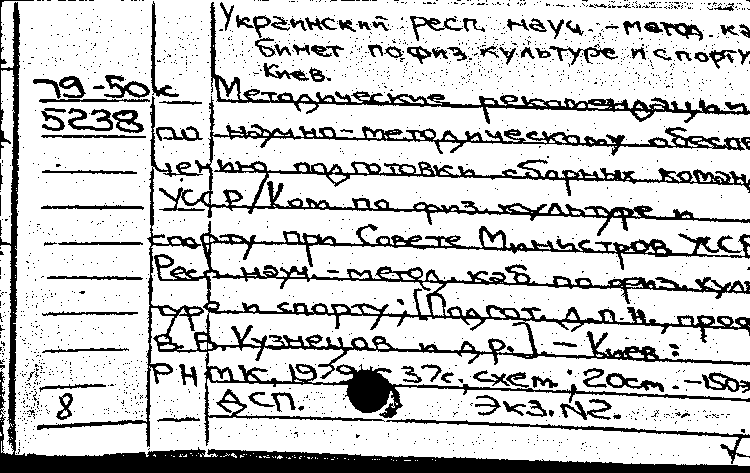 Украинский респ. науч.-метод. ка
бинет по физ. культуре и спорту
Киев.
79-50к Методические рекомендации
5238 по научно-методическому обеспе
чению подготовки сборных коман
УССР/Ком. по физ. культуре и
спорту при Совете Министров УССР
Респ. науч.-метод. каб. по физ. куль
туре и спорту; [Подгот. д.п.н., проф
В.В. Кузнецов и др.]. - Киев:
РНМК, 1979. 37с., схем.; 20см. -150э
8 ДСП. Экз. N2.